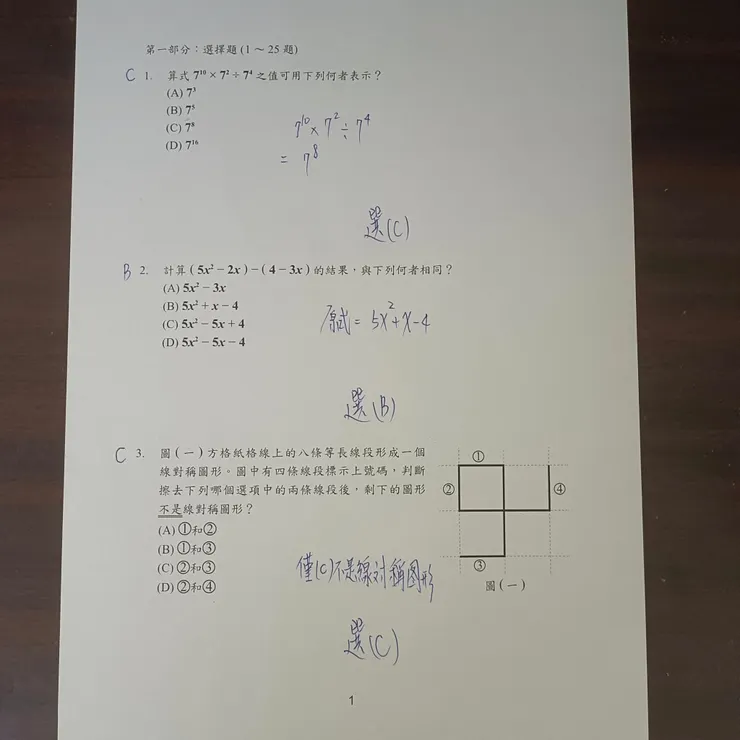 第一部分：選擇題 (1 ～ 25 題)
C 1. 算式 7¹⁰ × 7² ÷ 7⁴ 之值可用下列何者表示？
(A) 7³
(B) 7⁵
(C) 7⁸
(D) 7¹⁶
7¹⁰ × 7² ÷ 7⁴
= 7⁸
選(C)
B 2. 計算 ( 5x² − 2x ) − ( 4 − 3x ) 的結果，與下列何者相同？
(A) 5x² − 3x
(B) 5x² + x − 4
(C) 5x² − 5x + 4
(D) 5x² − 5x − 4
原式 = 5x² + x − 4
選(B)
C 3. 圖 ( 一 ) 方格紙格線上的八條等長線段形成一個
線對稱圖形。圖中有四條線段標示上號碼，判斷
擦去下列哪個選項中的兩條線段後，剩下的圖形
不是線對稱圖形？
(A) ①和②
(B) ①和③
(C) ②和③
(D) ②和④
①
②
④
③
圖 ( 一 )
僅(C)不是線対稱图形
選(C)
1